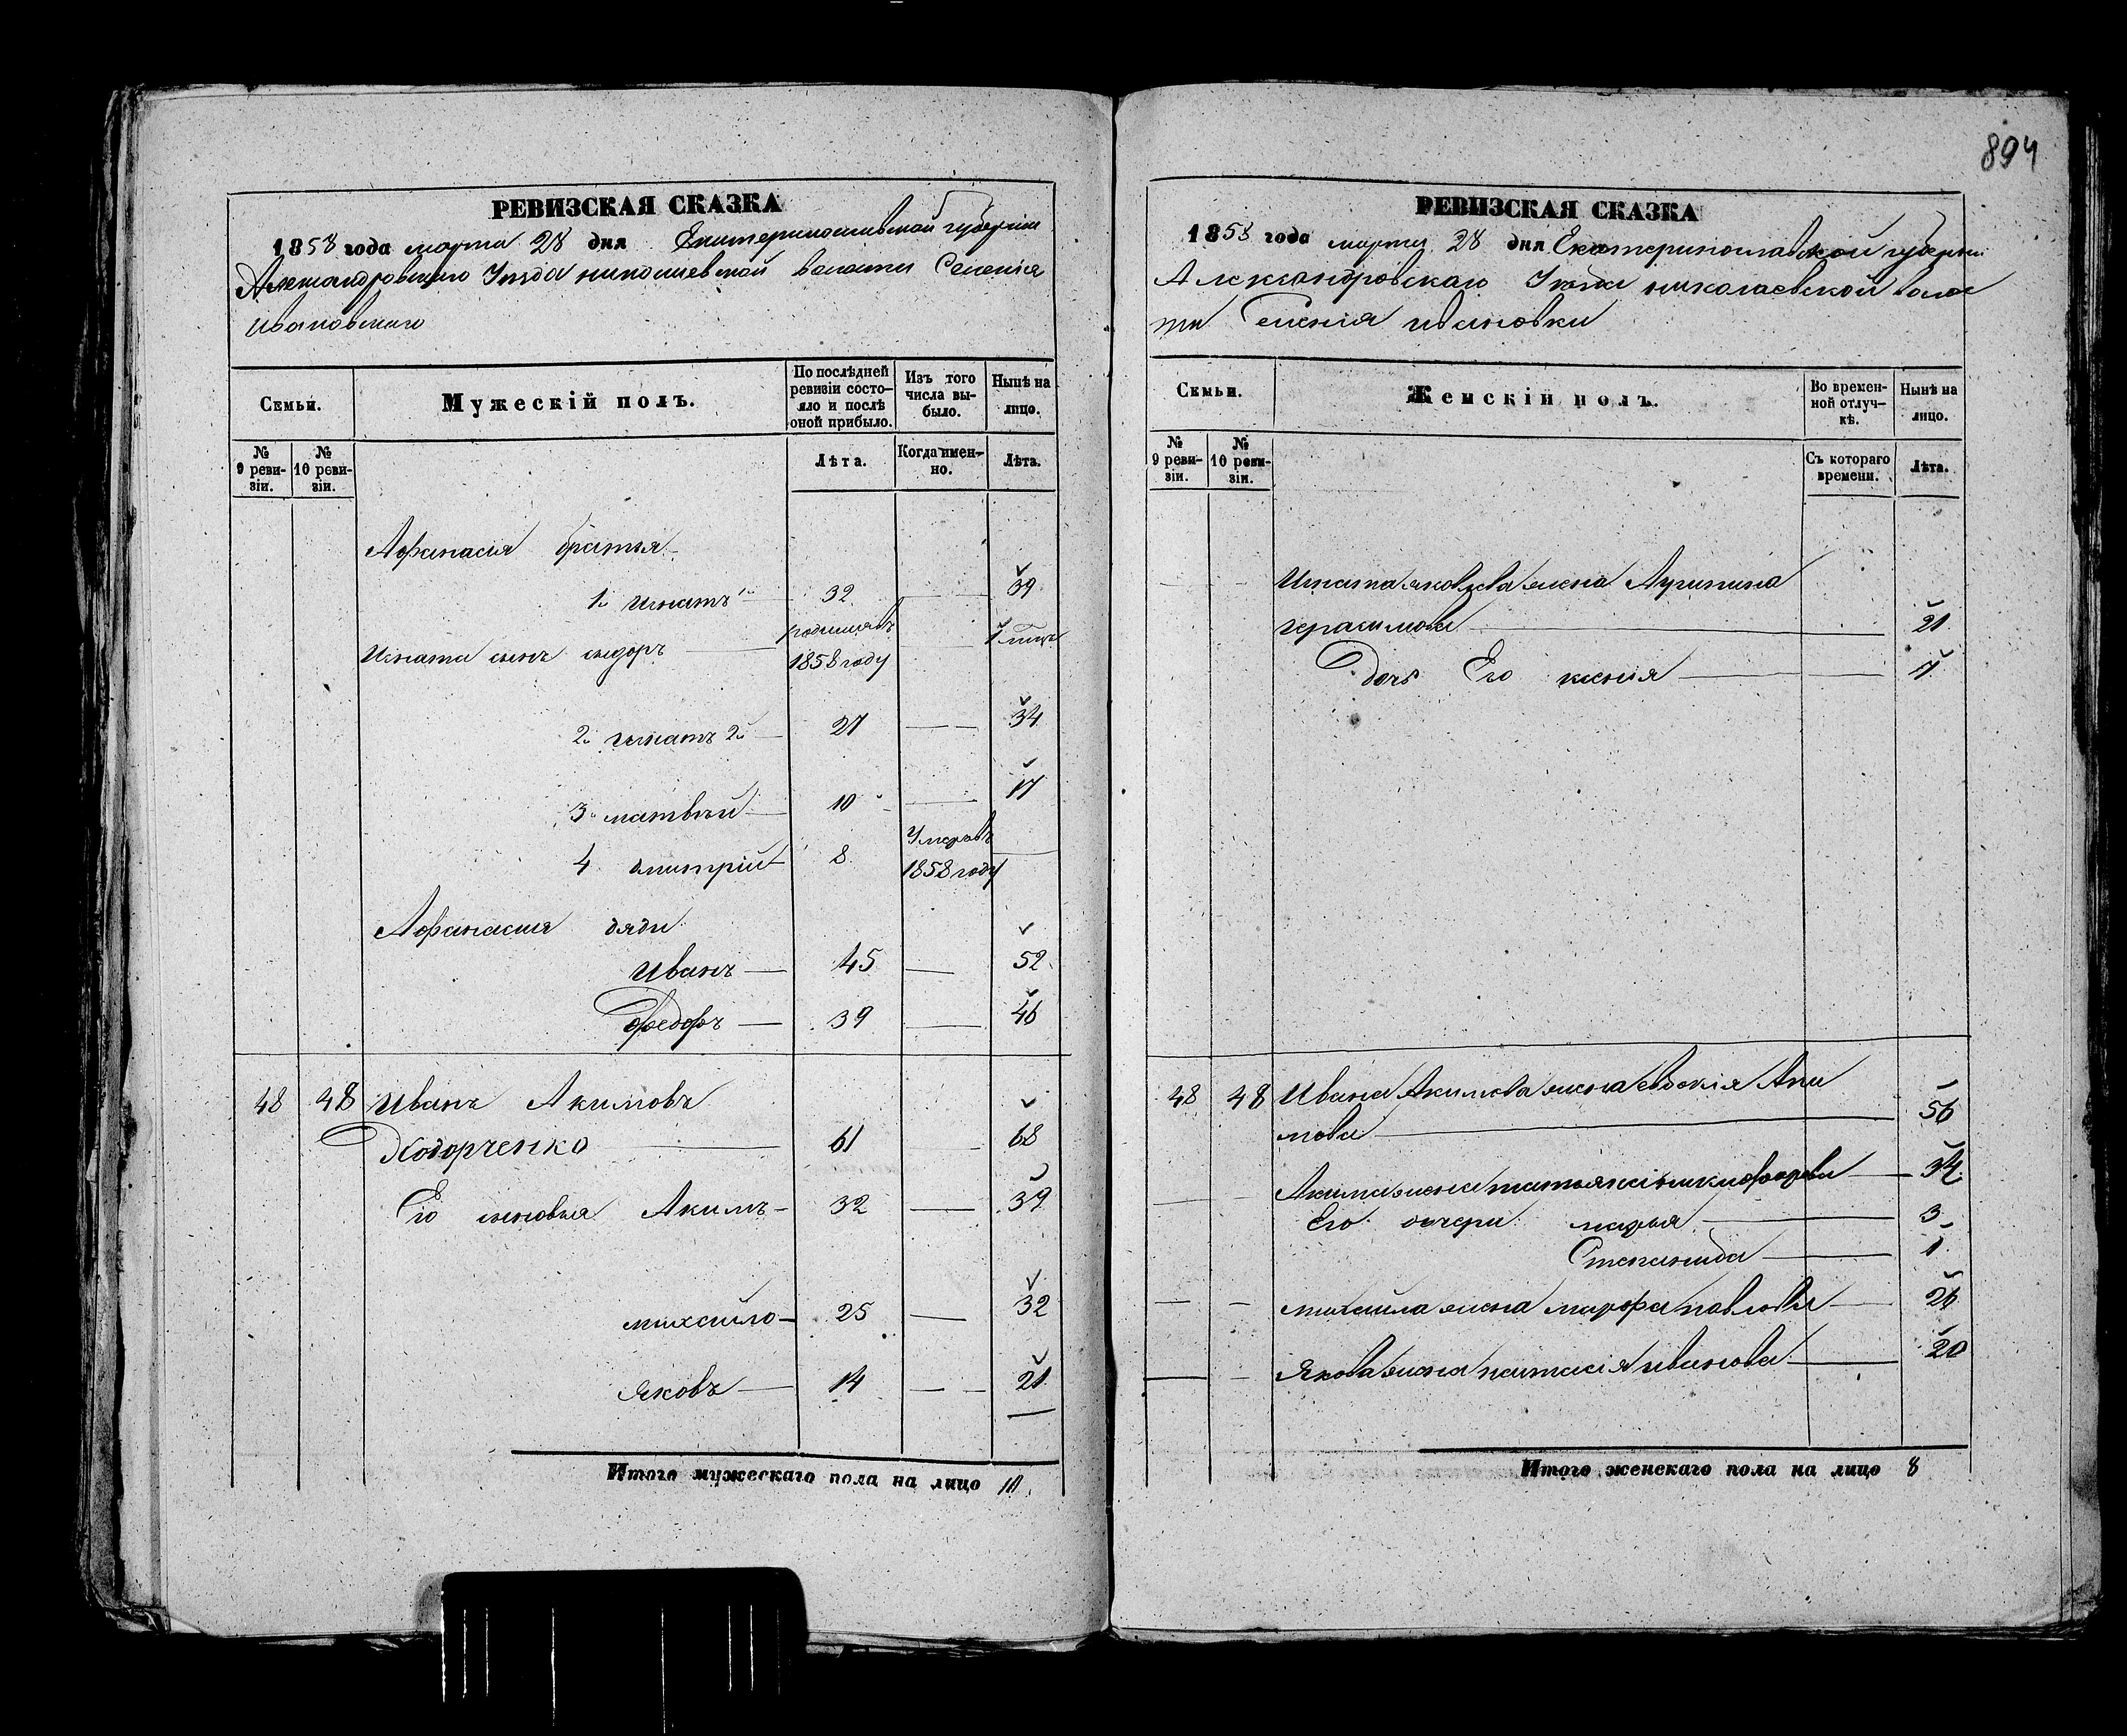 894
РЕВИЗСКАЯ СКАЗКА
1858 года марта 28 дня Екатеринославской губернии
Александровскаго Уезда николаевской волости Селенія
Ивановскаго
Семьи.
Мужескій полъ.
По послѣдней ревизіи состо-
яло и послѣ оной прибыло.
Изъ того числа вы-
было.
Нынѣ на лицо.
№ 9 реви-
зіи.
№ 10 реви-
зіи.
Лѣта.
Когда имен-
но.
Лѣта.
Афанасія братья
1й Игнатъ 1й 32 39
Игната сынъ сидоръ родился въ 1858 году 1
2й игнатъ 2й 27 34
3й матвѣй 10 17
4 дмитрій 8 Умеръ въ 1858 году
Афанасия дяди
Иванъ 45 52
Федоръ 39 46
48 48 Иванъ Акимовъ
Ходорченко 61 68
Его сыновья Акимъ 32 39
михайло 25 32
яковъ 14 21
Итого мужескаго пола на лицо 10
РЕВИЗСКАЯ СКАЗКА
1858 года марта 28 дня Екатеринославской губернии
Александровскаго Уезда николаевской волос
ти Селенія ивановки
Семьи.
Женскій полъ.
Во времен-
ной отлуч-
кѣ.
Нынѣ на лицо.
№ 9 реви-
зіи.
№ 10 реви-
зіи.
Съ котораго времени.
Лѣта.
Игната яковлева жена Агрипина
герасимова 21
Дочь Его ксенія
48 48 Ивана Акимова жена евдокія Аки
мова 56
Акима жена татьяна 34
Его дочери марья 3
Степанида 1
михайла жена марфа павлова 26
Якова жена наталія иванова 20
Итого женскаго пола на лицо 8